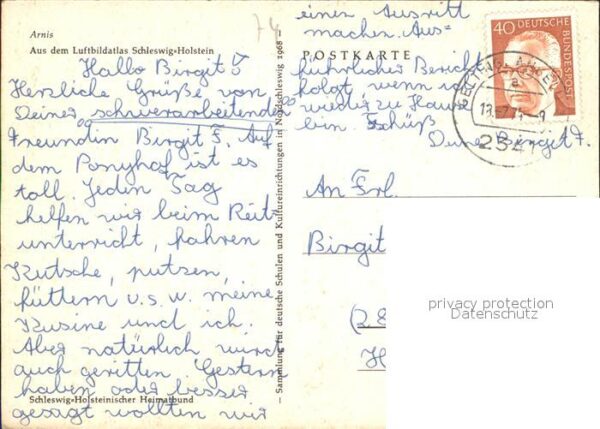 74
Arnis
Aus dem Luftbildatlas Schleswig-Holstein
Hallo Birgit!
Herzliche Grüße von
Deiner schwerarbeitenden
Freundin Birgit F. Auf
dem Ponyhof ist es
toll. Jeden Tag
helfen wir beim Reit
unterricht, fahren
Kutsche, putzen,
füttern u.s.w. meine
Kusine und ich.
Aber natürlich wird
auch geritten. Gestern
haben oder besser
gesagt wollten wir
Schleswig-Holsteinischer Heimatbund
Sammlung für deutsche Schulen und Kultureinrichtungen in Nordschleswig 1968
einen Ausritt
machen. Aus=
POSTKARTE
führlicher Bericht
folgt, wenn ich
wieder zu Hause
bin. Tschüß
Deine Birgit F.
40 DEUTSCHE BUNDESPOST
An Frl.
Birgit
(28
H
privacy protection
Datenschutz